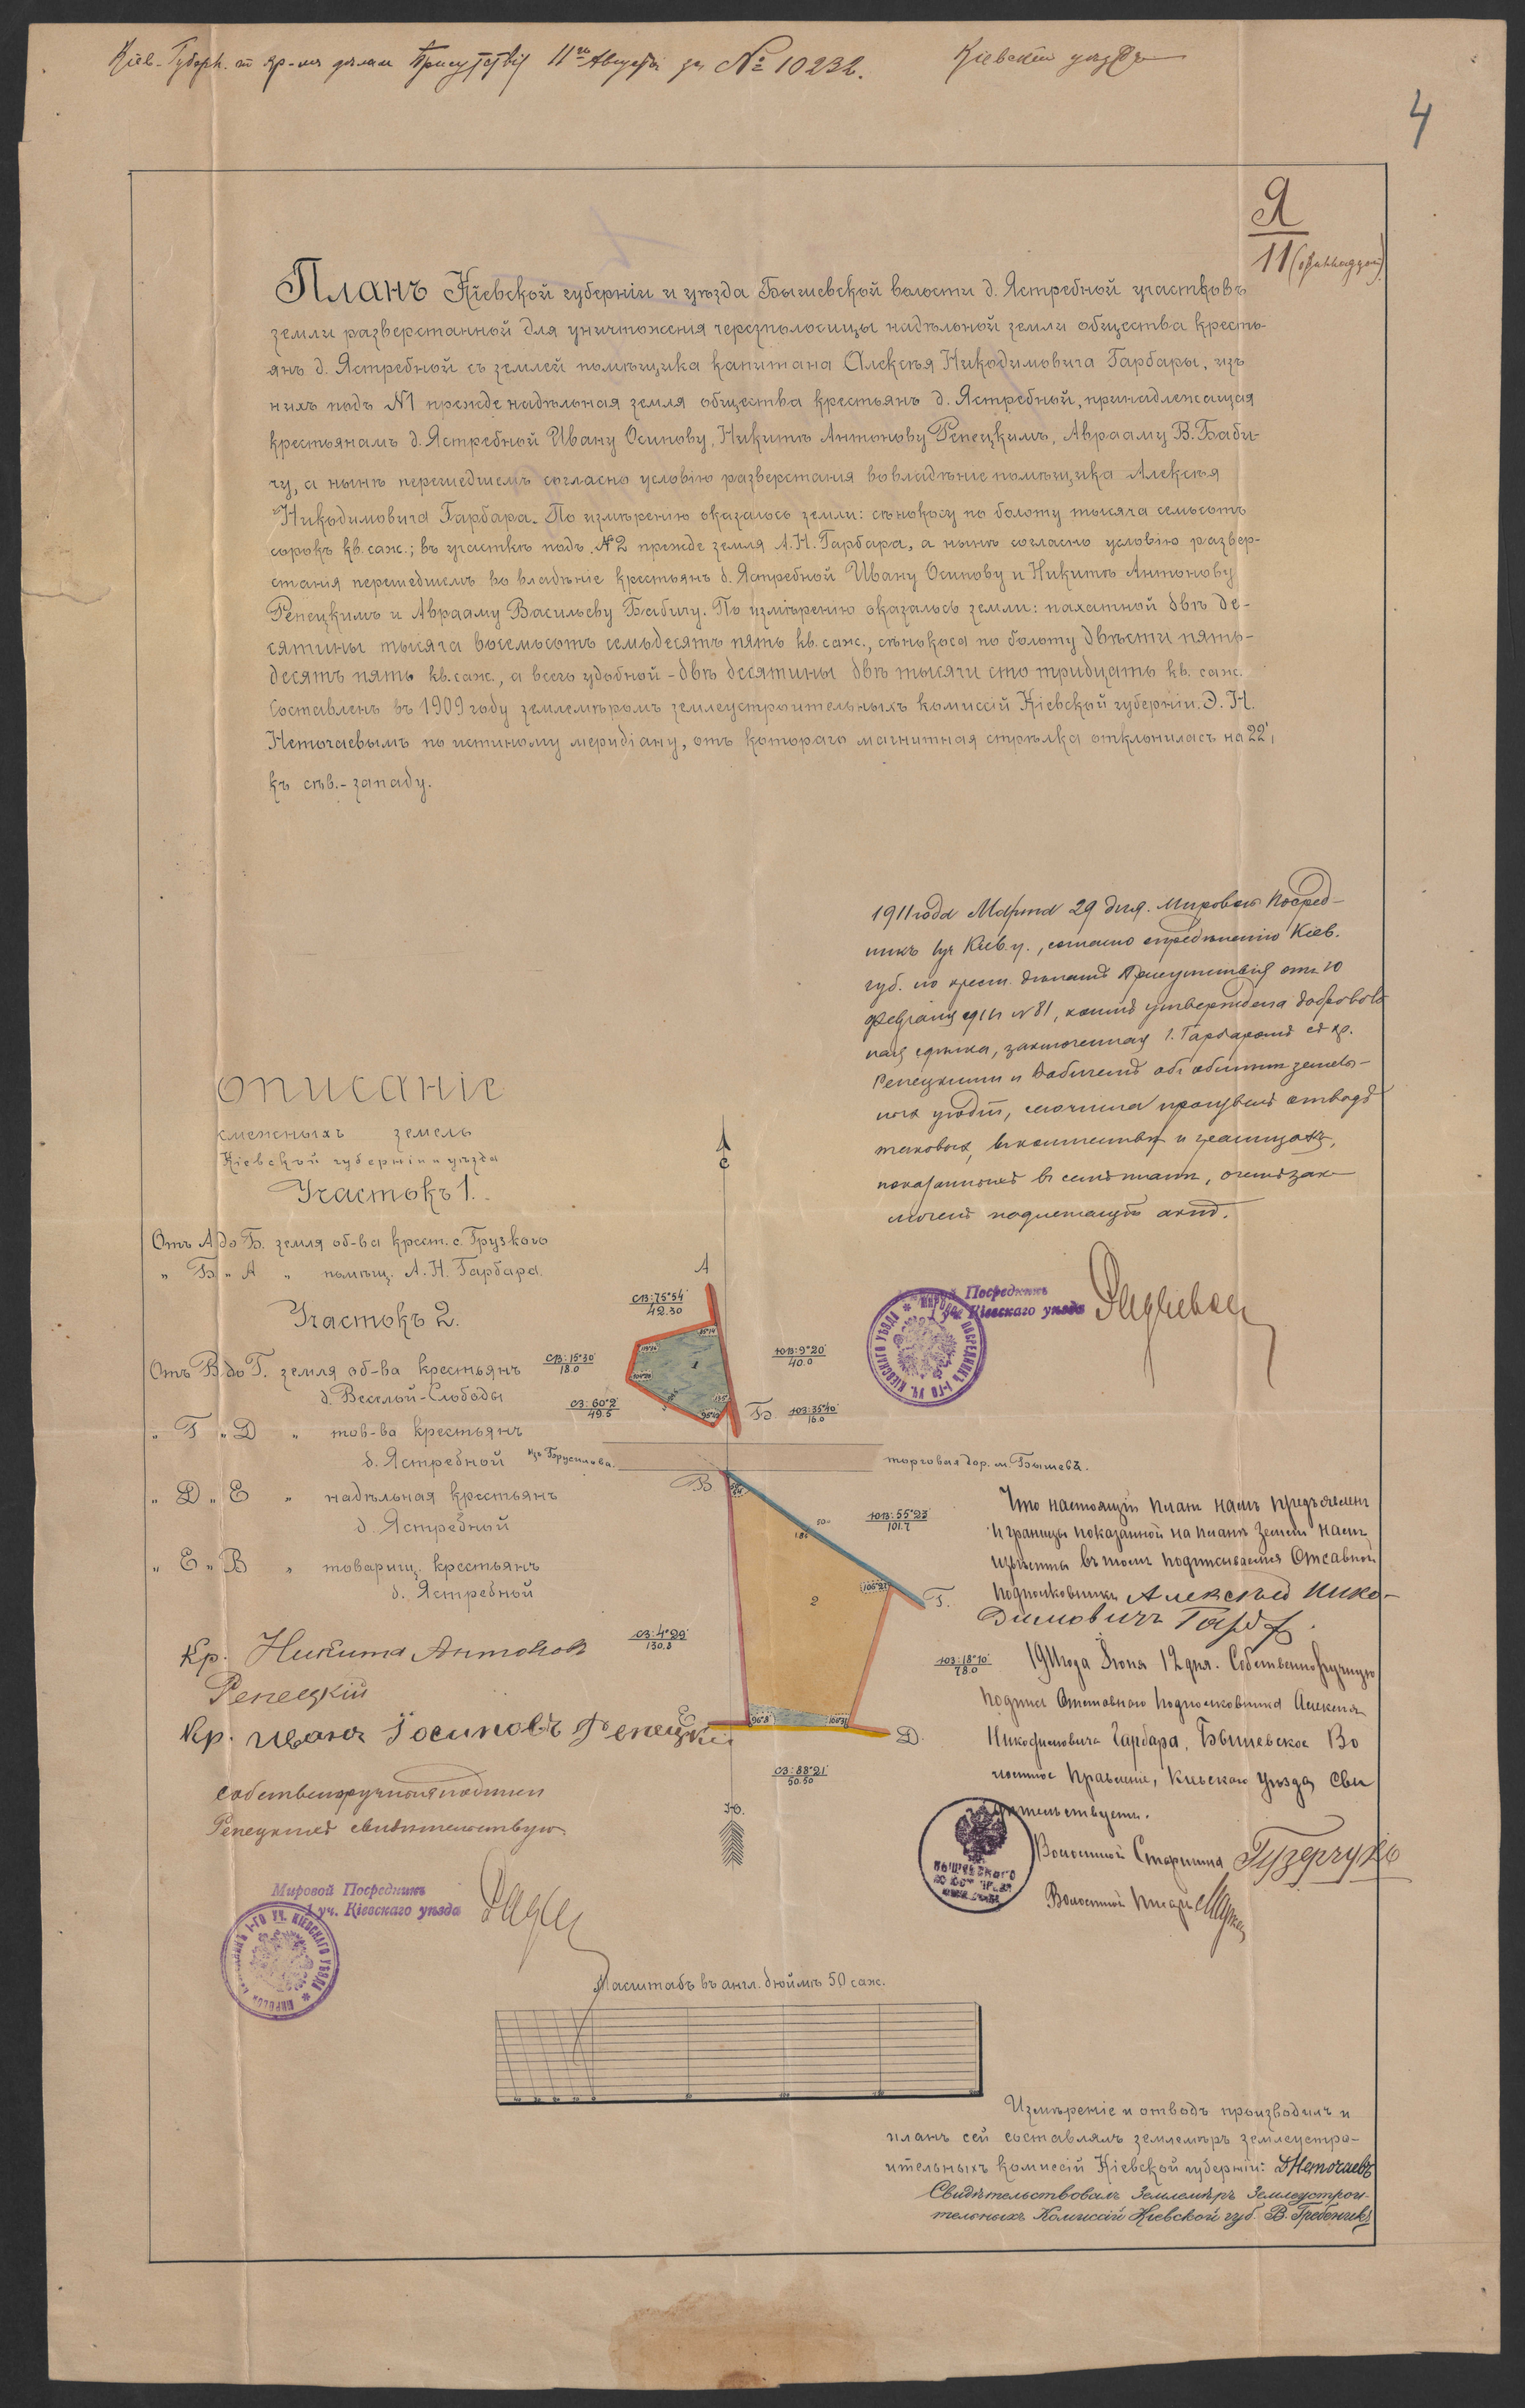 Кіев. Губерн. по кр-мъ дѣламъ Присутствія 11го Августа за № 10232.
Кіевскій уѣздъ
4
Я
11 (одиннадцат)
Планъ Кіевской губерніи и уѣзда Бышевской волости д. Ястребной участковъ
земли разверстанной для уничтоженія черезполосицы надѣльной земли общества кресть-
янъ д. Ястребной съ землей помѣщика капитана Алексѣя Никодимовича Гарбары, изъ
нихъ подъ №1 прежде надѣльная земля общества крестьянъ д. Ястребной, принадлежащая
крестьянамъ д. Ястребной Ивану Осипову, Никитѣ Антонову Репецкимъ, Аврааму В. Баби-
чу, а нынѣ перешедшемъ согласно условію разверстанія во владѣніе помѣщика Алексѣя
Никодимовича Гарбара. По измѣренію оказалось земли: сѣнокосу по болоту тысяча семьсотъ
сорокъ кв. саж.; въ участкѣ подъ №2 прежде земля А.Н. Гарбара, а нынѣ согласно условію развер-
станія перешедшемъ во владѣніе крестьянъ д. Ястребной Ивану Осипову и Никитѣ Антонову
Репецкимъ и Аврааму Васильеву Бабичу. По измѣренію оказалось земли: пахатной двѣ де-
сятины тысяча восемьсотъ семьдесятъ пять кв. саж., сѣнокоса по болоту двѣсти пять-
десятъ пять кв. саж., а всего удобной - двѣ десятины двѣ тысячи сто тридцать кв. саж.
Составленъ въ 1909 году землемѣромъ землеустроительныхъ комиссій Кіевской губерніи. Э. Н.
Неточаевымъ по истиному меридіану, отъ котораго магнитная стрѣлка отклонилась на 22'
къ сѣв.- западу.
1911 года Марта 29 дня. Мировой Посред-
никъ 1уч Кіев. у., согласно опредѣленію Кіев.
губ. по крест. дѣламъ Присутствія отъ 10
февраля 1911 № 81, коимъ утверждена доброволь
ная сдѣлка, заключенная г. Гарбаромъ съ кр.
Репецкими и Бабичемъ объ обмѣнѣ земель-
ныхъ угодій, сего числа произвелъ отводъ
таковыхъ, въ количествѣ и границахъ,
показанныхъ въ семъ планѣ, о чемъ зак-
люченъ надлежащій актъ.
Мировой Посредникъ
1 уч. Кіевскаго уѣзда
МИРОВОЙ ПОСРЕДНИКЪ 1-ГО УЧ. КІЕВСКАГО УѢЗДА
Описаніе
смежныхъ земель
Кіевской губерніи и уѣзда
Участокъ 1.
Отъ А до Б. земля об-ва крест. с. Грузкого
" Б " А " помѣщ. А. Н. Гарбара.
Участокъ 2.
Отъ В до Г. земля об-ва крестьянъ
д. Веселой-Слободы
" Г " Д " тов-ва крестьянъ
д. Ястребной
" Д " Е " надѣльная крестьянъ
д. Ястребной
" Е " В " товарищ. крестьянъ
д. Ястребной
С
А
СВ:75°54'
42.30
СВ:15°30'
18.0
СЗ:60°2'
49.5
ЮВ:9°20'
40.0
ЮЗ:35°40'
16.0
1
Б
изъ Брусилова.
торговая дор. м. Бышевъ.
В
ЮВ:55°23'
101.7
106°27'
2
Г.
СЗ:4°29'
130.8
ЮЗ:18°10'
78.0
Е
96°8'
Д.
СЗ:88°21'
50.50
Ю.
Кр. Никита Антонов
Репецкій
Кр. Иванъ Іосиповъ Репецкій
Собственоручныя подписи
Репецкихъ свидѣтельствую.
Мировой Посредникъ
1 уч. Кіевскаго уѣзда
МИРОВОЙ ПОСРЕДНИКЪ 1-ГО УЧ. КІЕВСКАГО УѢЗДА
Что настоящій планъ намъ предъявленъ
и границы показанной на планѣ земли намъ
извѣстны въ томъ подписываемся Отставной
подполковникъ Алексѣй Нико-
димовичъ Гарб
1911 года Іюня 12 дня. Собственноручную
подпись Отставного подполковника Алексѣя
Никодимовича Гарбара, Бышевское Во
лостное Правленіе, Кіевскаго уѣзда сви
дѣтельствуетъ.
Волостной Старшина Гузерчукъ
Волостной Писарь
БЫШЕВСКОГО
Масштабъ въ англ. дюймѣ 50 саж.
Измѣреніе и отводъ производилъ и
планъ сей составлялъ землемѣръ землеустро-
ительныхъ комиссій Кіевской губерніи: Э Неточаевъ
Свидѣтельствовалъ Землемѣръ Землеустрои-
тельныхъ Комиссій Кіевской губ. В. Гребенчик